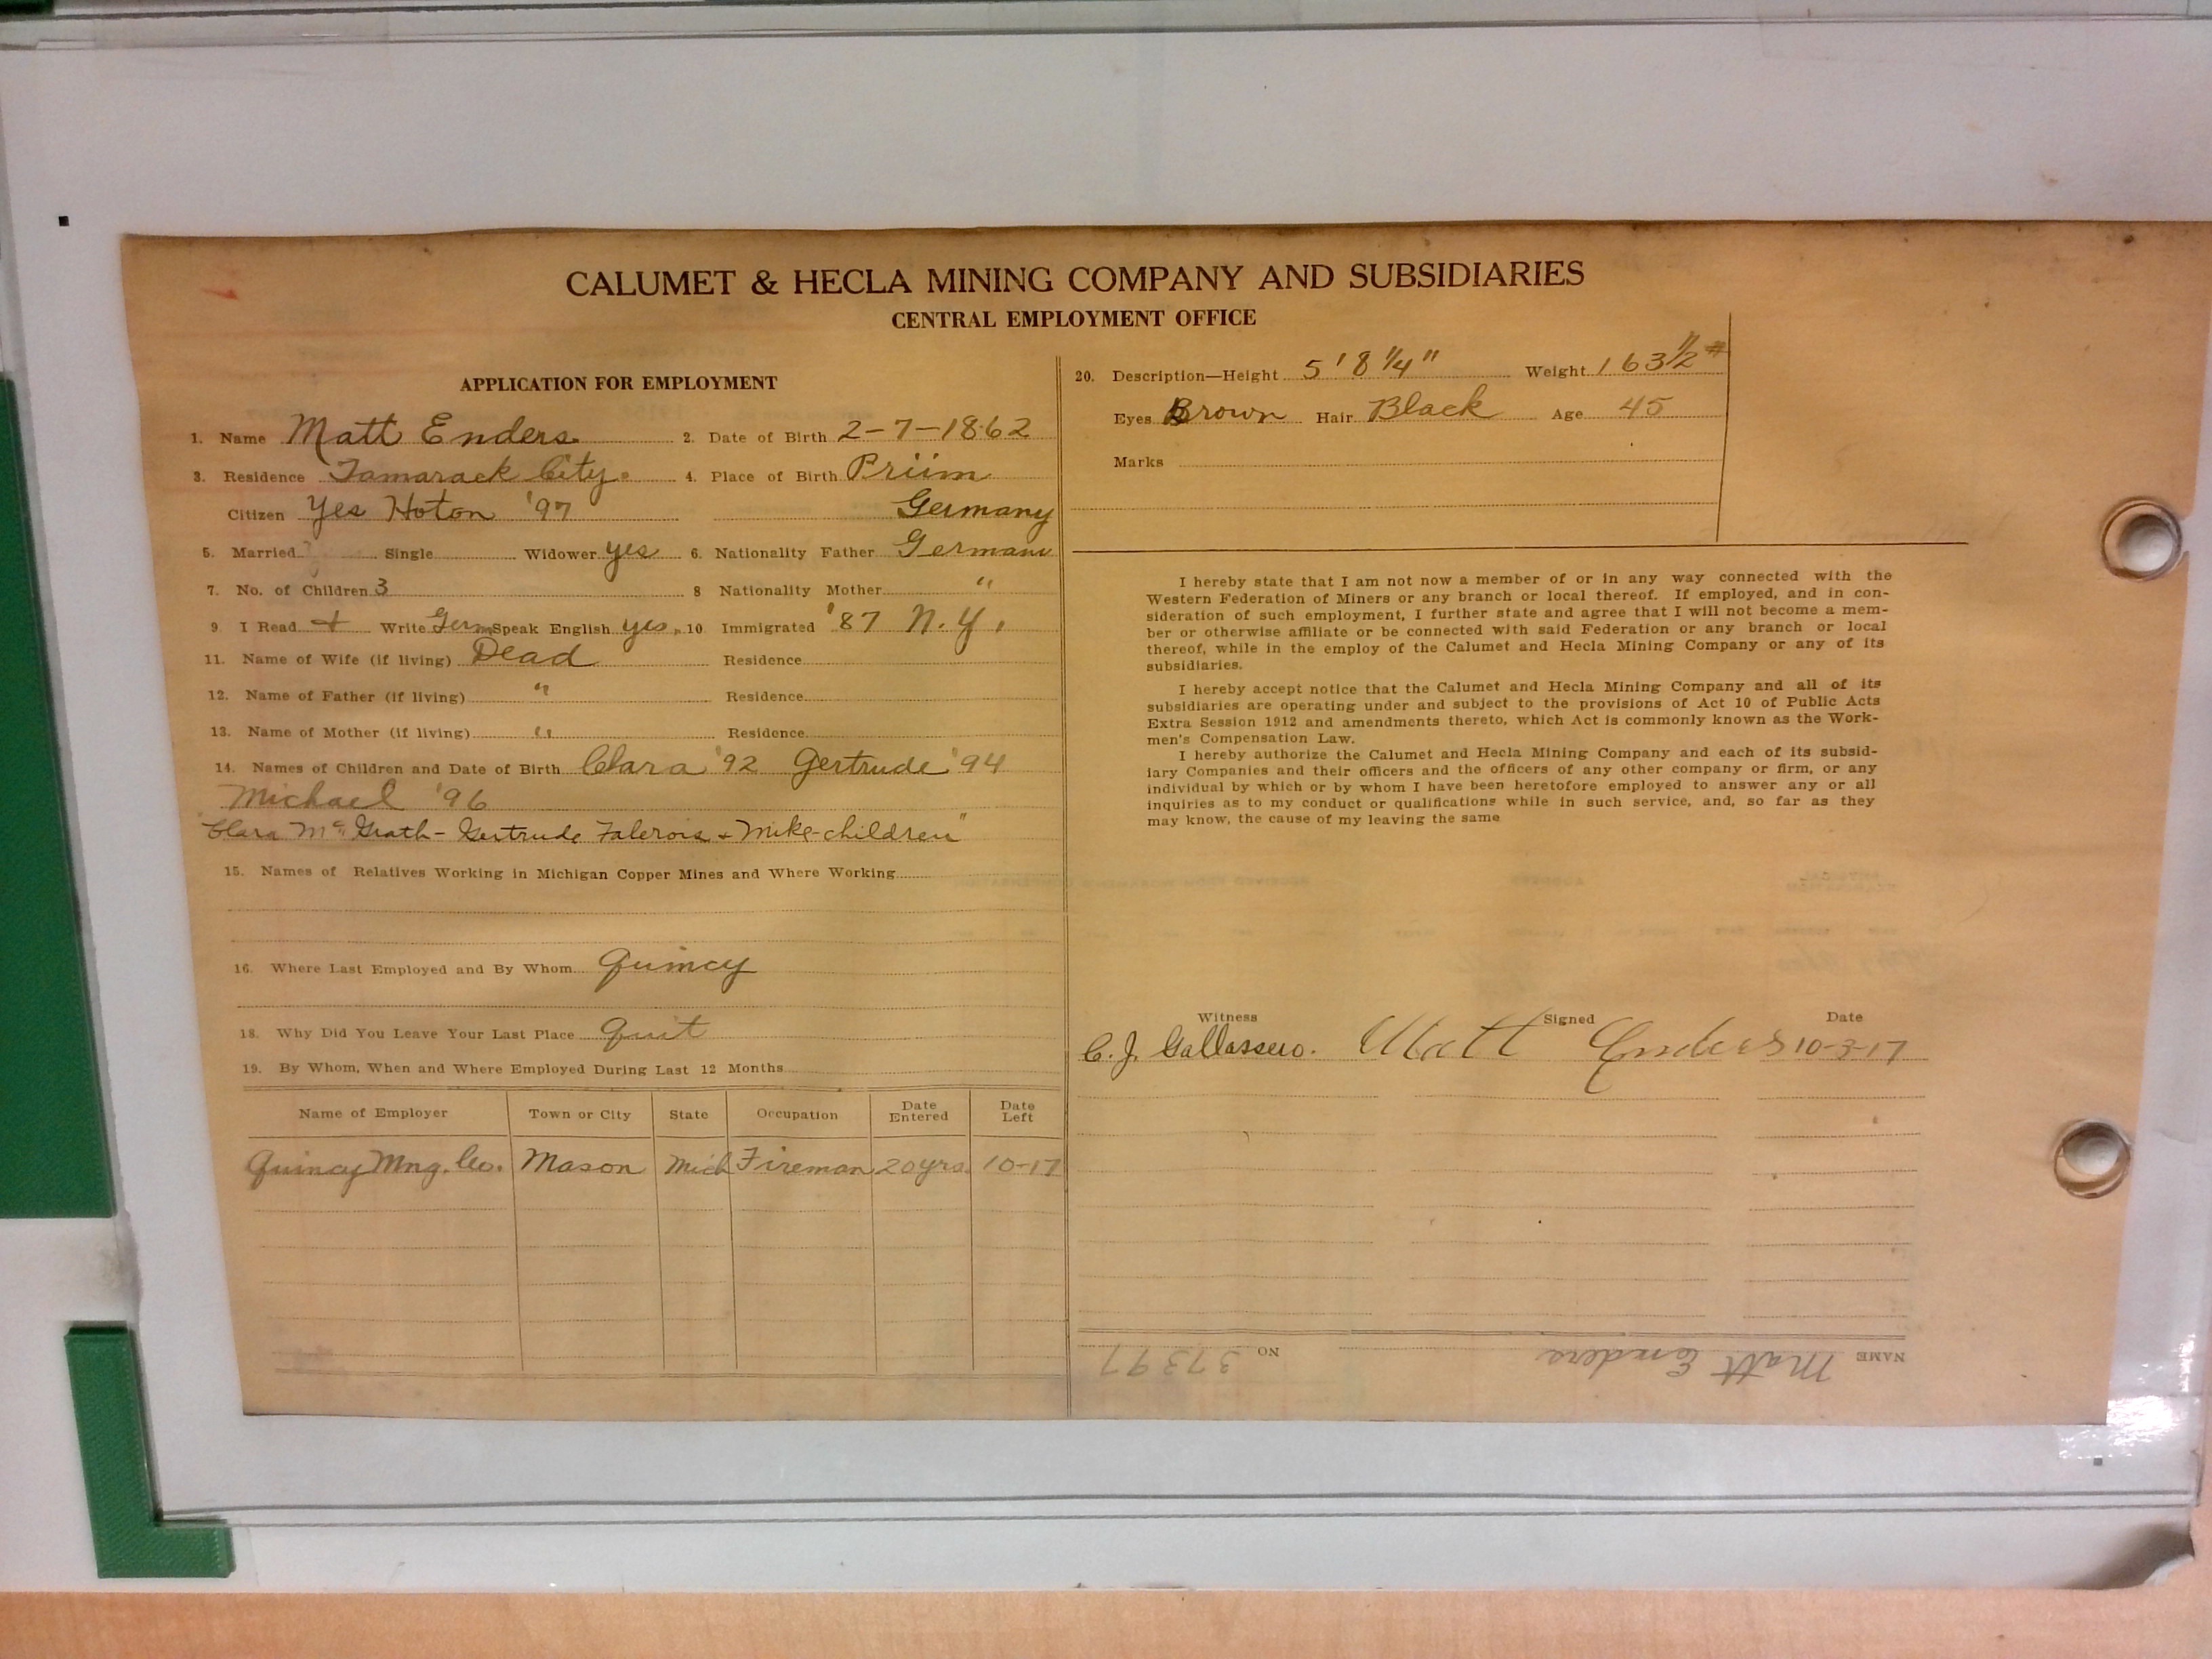 CALUMET & HECLA MINING COMPANY AND SUBSIDIARIES
CENTRAL EMPLOYMENT OFFICE
APPLICATION FOR EMPLOYMENT
1. Name Matt Enders 2. Date of Birth 2-7-1862
3. Residence Tamarack City. 4. Place of Birth Prüm
Citizen Yes Hoton '97 Germany
5. Married Single Widower yes 6. Nationality Father German
7. No. of Children 3 8 Nationality Mother "
9. I Read + Write Germ Speak English yes. 10. Immigrated '87 N.Y.
11. Name of Wife (if living) Dead Residence
12. Name of Father (if living) " Residence
13. Name of Mother (if living) " Residence
14. Names of Children and Date of Birth Clara '92 Gertrude '94
Michael '96
"Clara McGrath - Gertrude Falerois + Mike - children"
15. Names of Relatives Working in Michigan Copper Mines and Where Working
16. Where Last Employed and By Whom Quincy
18. Why Did You Leave Your Last Place Quit
19. By Whom, When and Where Employed During Last 12 Months
Name of Employer Town or City State Occupation Date Entered Date Left
Quincy Mng. Co. Mason Mich Fireman 20 yrs. 10-17
20. Description—Height 5' 8 1/4" Weight 163 1/2 #
Eyes Brown Hair Black Age 45
Marks
I hereby state that I am not now a member of or in any way connected with the
Western Federation of Miners or any branch or local thereof. If employed, and in con-
sideration of such employment, I further state and agree that I will not become a mem-
ber or otherwise affiliate or be connected with said Federation or any branch or local
thereof, while in the employ of the Calumet and Hecla Mining Company or any of its
subsidiaries.
I hereby accept notice that the Calumet and Hecla Mining Company and all of its
subsidiaries are operating under and subject to the provisions of Act 10 of Public Acts
Extra Session 1912 and amendments thereto, which Act is commonly known as the Work-
men's Compensation Law.
I hereby authorize the Calumet and Hecla Mining Company and each of its subsid-
iary Companies and their officers and the officers of any other company or firm, or any
individual by which or by whom I have been heretofore employed to answer any or all
inquiries as to my conduct or qualifications while in such service, and, so far as they
may know, the cause of my leaving the same
Witness Signed Date
C. J. Matt Enders 10-3-17
NAME Matt Enders NO 37397